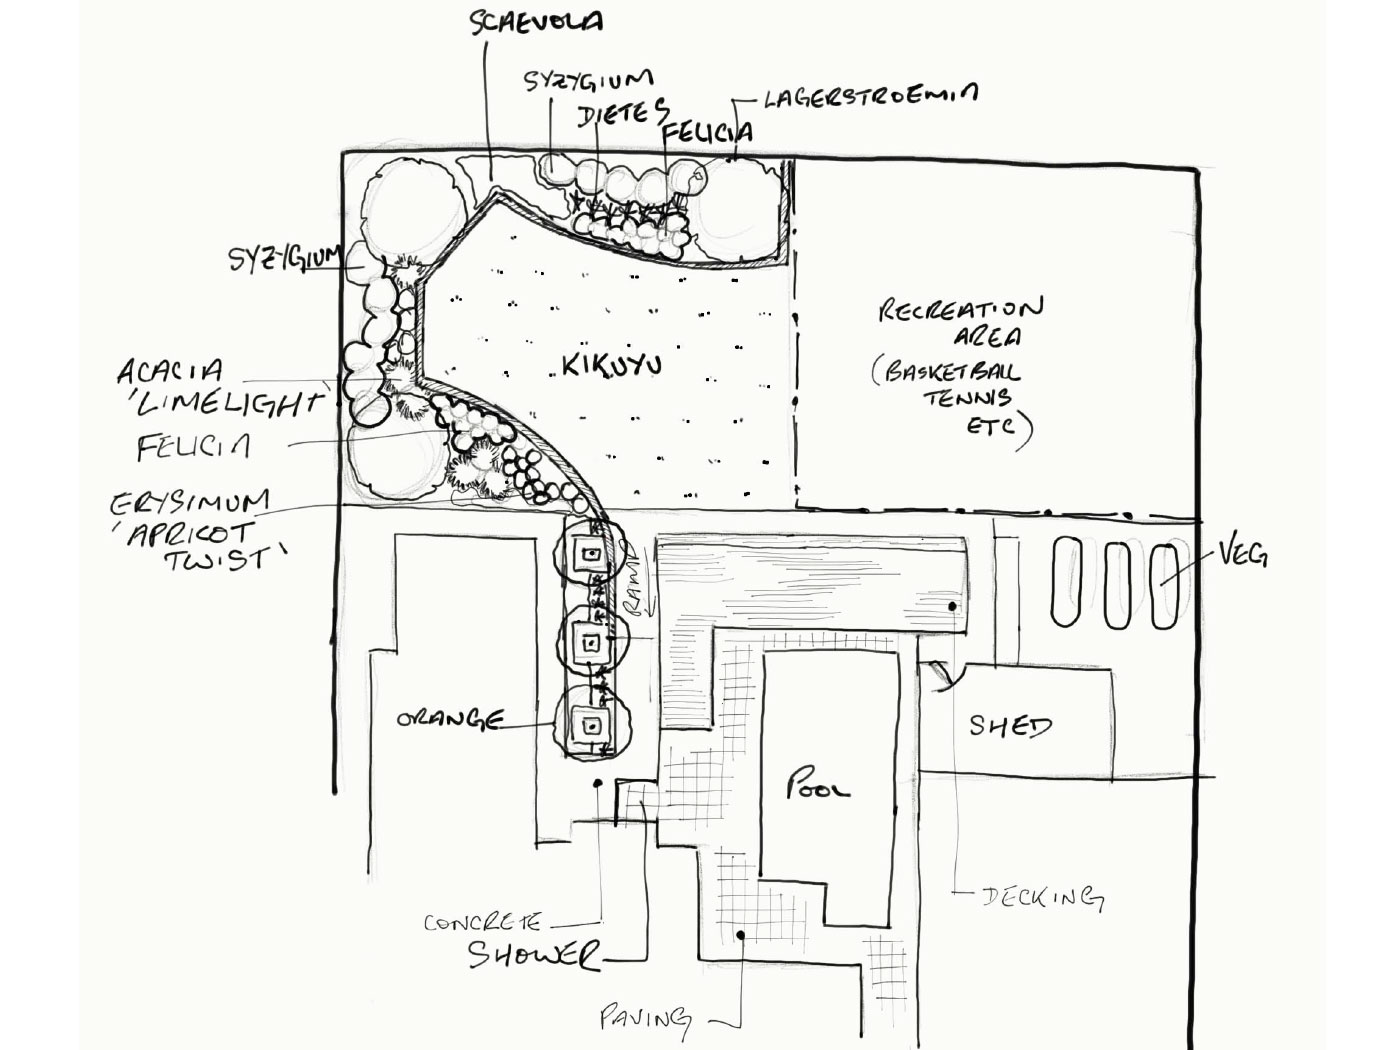 SCAEVOLA
SYZYGIUM
DIETES
FELICIA
LAGERSTROEMIA
SYZYGIUM
RECREATION
AREA
(BASKETBALL
TENNIS
ETC)
KIKUYU
ACACIA
'LIMELIGHT'
FELICIA
ERYSIMUM
'APRICOT
TWIST'
RAMP
VEG
ORANGE
SHED
POOL
DECKING
CONCRETE
SHOWER
PAVING